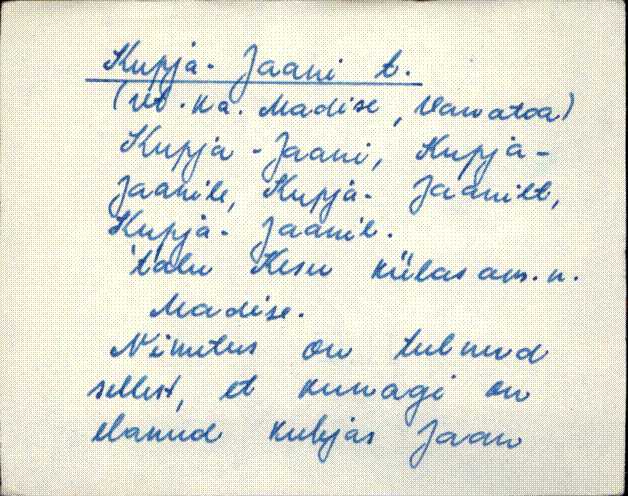 Kupja-Jaani t.
(vt. ka. Madise, Vanatoa)
Kupja-Jaani, Kupja-
Jaanile, Kupja-Jaanilt,
Kupja-Jaanil.
talu Kesu külas am. n.
Madise.
Nimetus on tulnud
sellest, et kunagi on
elanud kubjas Jaan